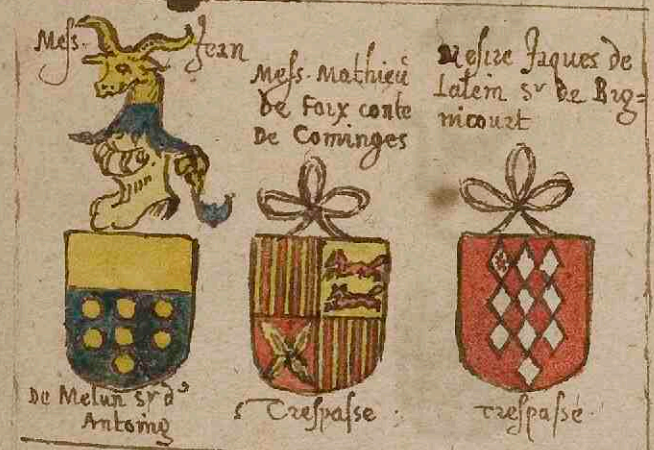 Mess. Jean
De Melun Sr d'
Antoing
Mess. Mathieu
de Foix conte
De Cominges
Trespasse
Mesire Jaques de
Lalein Sr de Bug=
nicourt
trespassé.